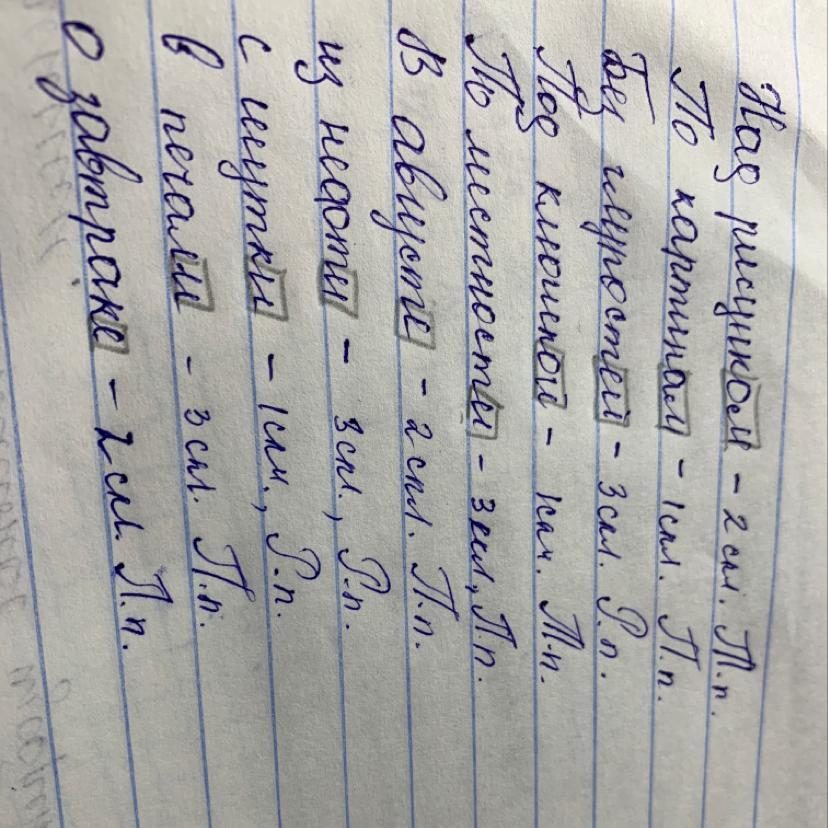 Над рисунком - 2 скл. Т.п.
По картинам - 1 скл. П.п.
Без глупостей - 3 скл. Р.п.
Под клюшкой - 1 скл. Т.п.
По местности - 3 скл, П.п.
В августе - 2 скл. П.п.
из нефти - 3 скл., Р.п.
с шутки - 1 скл., Р.п.
в печали - 3 скл. П.п.
о завтраке - 2 скл. П.п.